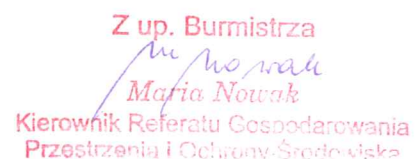 Z up. Burmistrza
Nowak
Maria Nowak
Kierownik Referatu Gospodarowania
Przestrzenią i Ochrony Środowiska